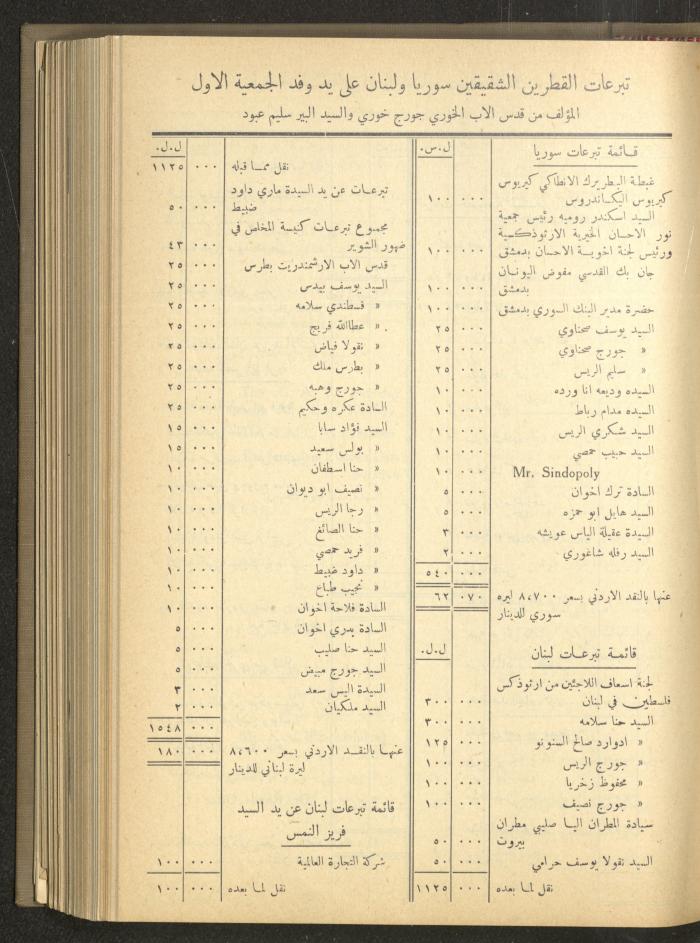 تبرعات القطرين الشقيقين سوريا ولبنان على يد وفد الجمعية الاول
المؤلف من قدس الاب الخوري جورج خوري والسيد البير سليم عبود
قائمة تبرعات سوريا ل.س.
غبطة البطريرك الانطاكي كيريوس
كيريوس اليكساندروس ٠٠٠ ١٠٠
السيد اسكندر روميه رئيس جمعية
نور الاحسان الخيرية الارثوذكسية
ورئيس لجنة اخوية الاحسان بدمشق ٠٠٠ ١٠٠
جان بك القدسي مفوض اليونان
بدمشق ٠٠٠ ١٠٠
حضرة مدير البنك السوري بدمشق ٠٠٠ ١٠٠
السيد يوسف صحناوي ٠٠٠ ٢٥
« جورج صحناوي ٠٠٠ ٢٥
« سليم الريس ٠٠٠ ٢٥
السيده وديعه انا ورده ٠٠٠ ١٠
السيده مدام رباط ٠٠٠ ١٠
السيد شكري الريس ٠٠٠ ١٠
السيد حبيب حمصي ٠٠٠ ١٠
Mr. Sindopoly ٠٠٠ ١٠
السادة ترك اخوان ٠٠٠ ٥
السيد هايل ابو حمزه ٠٠٠ ٥
السيدة عقيلة الياس عويشه ٠٠٠ ٣
السيد رفله شاغوري ٠٠٠ ٢
٠٠٠ ٥٤٠
عنها بالنقد الاردني بسعر ٨٬٧٠٠ ليره ٠٧٠ ٦٢
سوري للدينار
قائمة تبرعات لبنان ل.ل.
لجنة اسعاف اللاجئين من ارثوذكس
فلسطين في لبنان ٠٠٠ ٣٠٠
السيد حنا سلامه ٠٠٠ ٣٠٠
« ادوارد صالح السنونو ٠٠٠ ١٢٥
« جورج الريس ٠٠٠ ١٠٠
« محفوظ زخريا ٠٠٠ ١٠٠
« جورج نصيف ٠٠٠ ١٠٠
سيادة المطران اليا صليبي مطران
بيروت ٠٠٠ ٥٠
السيد نقولا يوسف حرامي ٠٠٠ ٥٠
نقل لما بعده ٠٠٠ ١١٢٥
ل.ل.
نقل مما قبله ٠٠٠ ١١٢٥
تبرعات عن يد السيدة ماري داود
ضبيط ٠٠٠ ٥٠
مجموع تبرعات كنيسة المخلص في
ضهور الشوير ٠٠٠ ٤٣
قدس الاب الارشمندريت بطرس ٠٠٠ ٢٥
السيد يوسف بيدس ٠٠٠ ٢٥
« قسطندي سلامه ٠٠٠ ٢٥
« عطاالله فريج ٠٠٠ ٢٥
« نقولا فياض ٠٠٠ ٢٥
« بطرس ملك ٠٠٠ ٢٥
« جورج وهبه ٠٠٠ ٢٥
السادة عكره وحكيم ٠٠٠ ٢٥
السيد فؤاد سابا ٠٠٠ ١٥
« بولس سعيد ٠٠٠ ١٥
« حنا اسطفان ٠٠٠ ١٠
« نصيف ابو ديوان ٠٠٠ ١٠
« رجا الريس ٠٠٠ ١٠
« حنا الصائغ ٠٠٠ ١٠
« فريد حمصي ٠٠٠ ١٠
« داود ضبيط ٠٠٠ ١٠
« نجيب طباع ٠٠٠ ١٠
السادة فلاحة اخوان ٠٠٠ ١٠
السادة بدري اخوان ٠٠٠ ٥
السيد حنا صليب ٠٠٠ ٥
السيد جورج مبيض ٠٠٠ ٥
السيدة اليس سعد ٠٠٠ ٣
السيد ملكيان ٠٠٠ ٢
٠٠٠ ١٥٤٨
عنها بالنقد الاردني بسعر ٨٬٦٠٠ ٠٠٠ ١٨٠
ليرة لبناني للدينار
قائمة تبرعات لبنان عن يد السيد
فريز النمس
شركة التجارة العالمية ٠٠٠ ١٠٠
نقل لما بعده ٠٠٠ ١٠٠